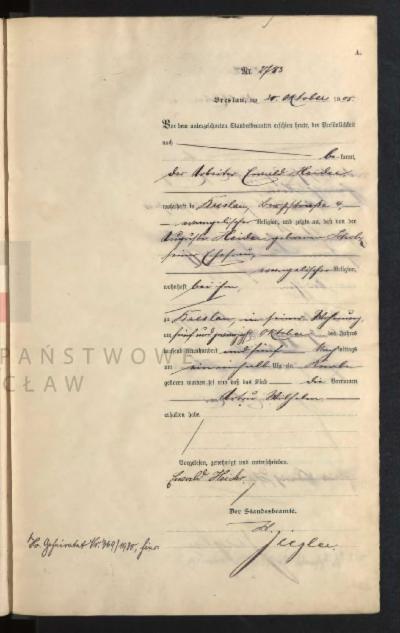 A.
Nr. 2783
Breslau, am 28. Oktober 1905.
Vor dem unterzeichneten Standesbeamten erschien heute, der Persönlichkeit
nach
bekannt,
der Arbeiter Ewald Heider
wohnhaft in Breslau, 4,
evangelischer Religion, und zeigte an, daß von der
Auguste Heider geborenen
seiner Ehefrau,
evangelischer Religion,
wohnhaft bei ihm,
zu Breslau, in seiner Wohnung,
am fünfundzwanzigsten Oktober des Jahres
tausend neunhundert und fünf mittags
um ein einhalb Uhr ein Knabe
geboren worden sei und daß das Kind die Vornamen
Artur Wilhelm
erhalten habe.
Vorgelesen, genehmigt und unterschrieben.
Ewald Heider.
Der Standesbeamte.
Ziegler
Geheiratet Nr. 369/1930, hier.
PAŃSTWOWE
CŁAW